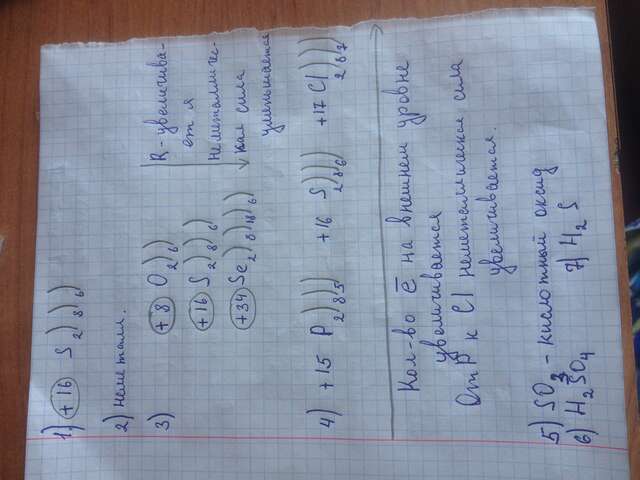 1) +16 S ) ) ) 2 8 6
2) неметалл.
3) +8 O ) ) 2 6
+16 S ) ) ) 2 8 6
+34 Se ) ) ) ) 2 8 18 6
R - увеличива-
ет я
неметалличес-
кая сила
уменьшается
4) +15 P ) ) ) 2 8 5 +16 S ) ) ) 2 8 6 +17 Cl ) ) ) 2 8 7
Кол-во ē на внешнем уровне
увеличивается
От P к Cl неметаллическая сила
увеличивается.
5) SO3 - кислотный оксид
6) H2SO4 7) H2 S